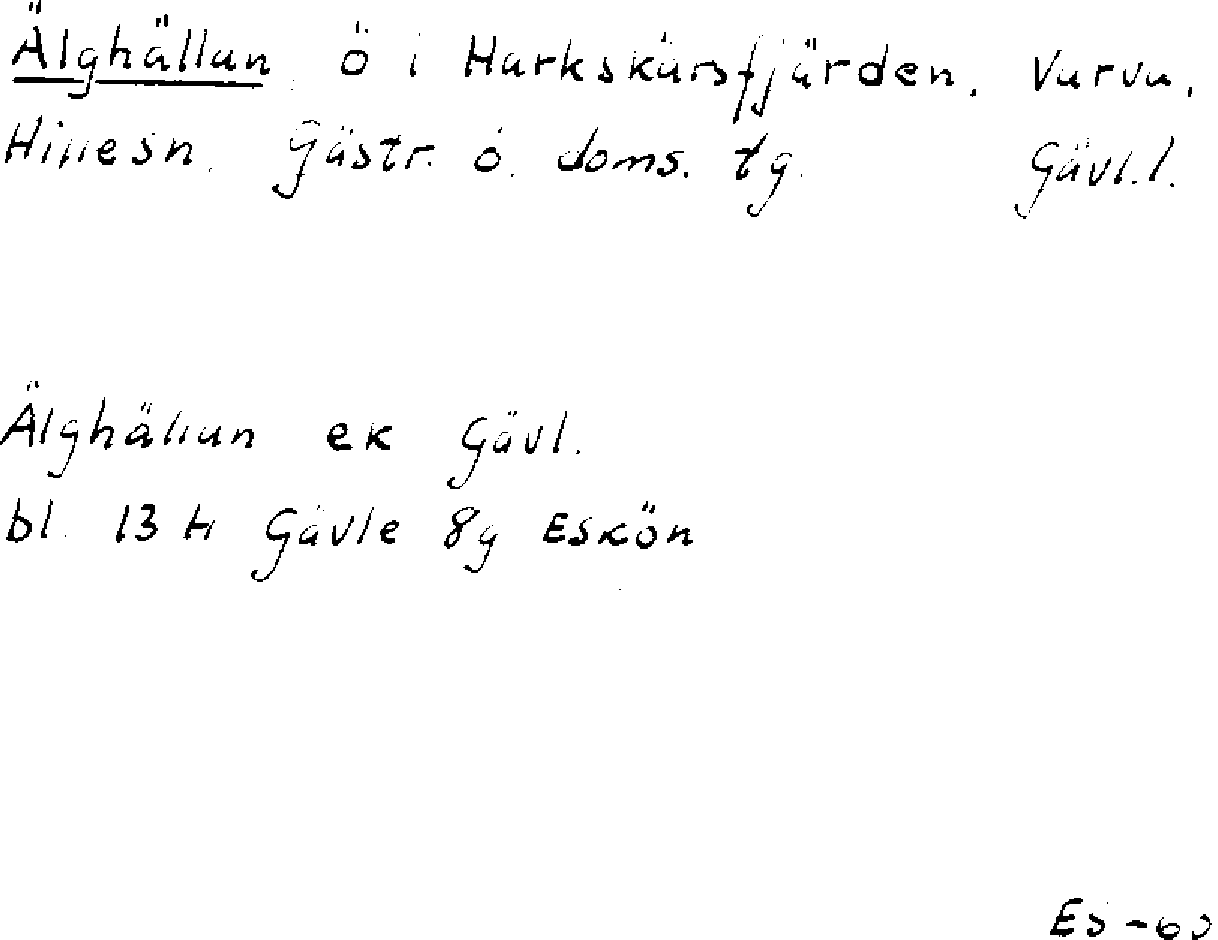 Älghällan, ö i Harkskärsfjärden, Varva,
Hille sn. Gästr. ö. doms. tg. Gävl. l.
Älghällan ek Gävl.
bl. 13 H Gävle 8g Eskön